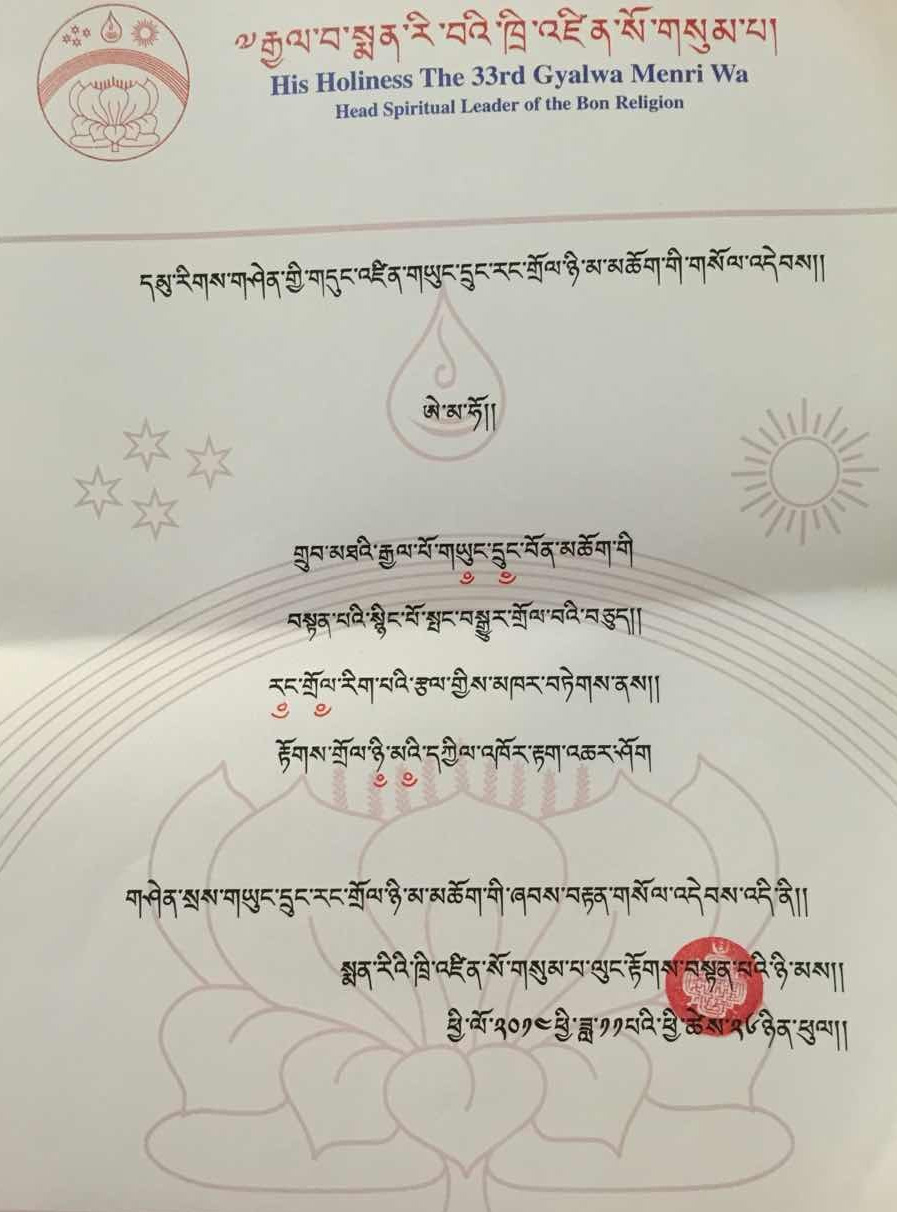 ༧རྒྱལ་བ་སྨན་རི་བའི་ཁྲི་འཛིན་སོ་གསུམ་པ།
His Holiness The 33rd Gyalwa Menri Wa
Head Spiritual Leader of the Bon Religion
དམུ་རིགས་གཤེན་གྱི་གདུང་འཛིན་གཡུང་དྲུང་རང་གྲོལ་ཉི་མ་མཆོག་གི་གསོལ་འདེབས།།
ཨེ་མ་ཧོ།།
གྲུབ་མཐའི་རྒྱལ་པོ་གཡུང་དྲུང་བོན་མཆོག་གི
བསྟན་པའི་སྙིང་པོ་སྤང་བསྒྱུར་གྲོལ་བའི་བཅུད།།
རང་གྲོལ་རིག་པའི་རྩལ་གྱིས་མཁར་བཏེགས་ནས།།
རྟོགས་གྲོལ་ཉི་མའི་དཀྱིལ་འཁོར་རྟག་འཆར་ཤོག
གཤེན་སྲས་གཡུང་དྲུང་རང་གྲོལ་ཉི་མ་མཆོག་གི་ཞབས་བརྟན་གསོལ་འདེབས་འདི་ནི།།
སྨན་རིའི་ཁྲི་འཛིན་སོ་གསུམ་པ་ལུང་རྟོགས་བསྟན་པའི་ཉི་མས།།
ཕྱི་ལོ་༢༠༡༤ཕྱི་ཟླ་༡༡པའི་ཕྱི་ཚེས་༢༦ཉིན་ཕུལ།།